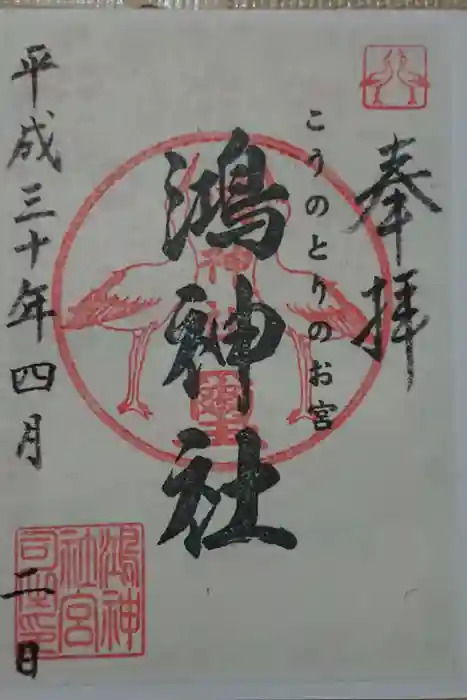 奉拝
こうのとりのお宮
鴻神社
平成三十年四月二日
鴻神
社宮
司印